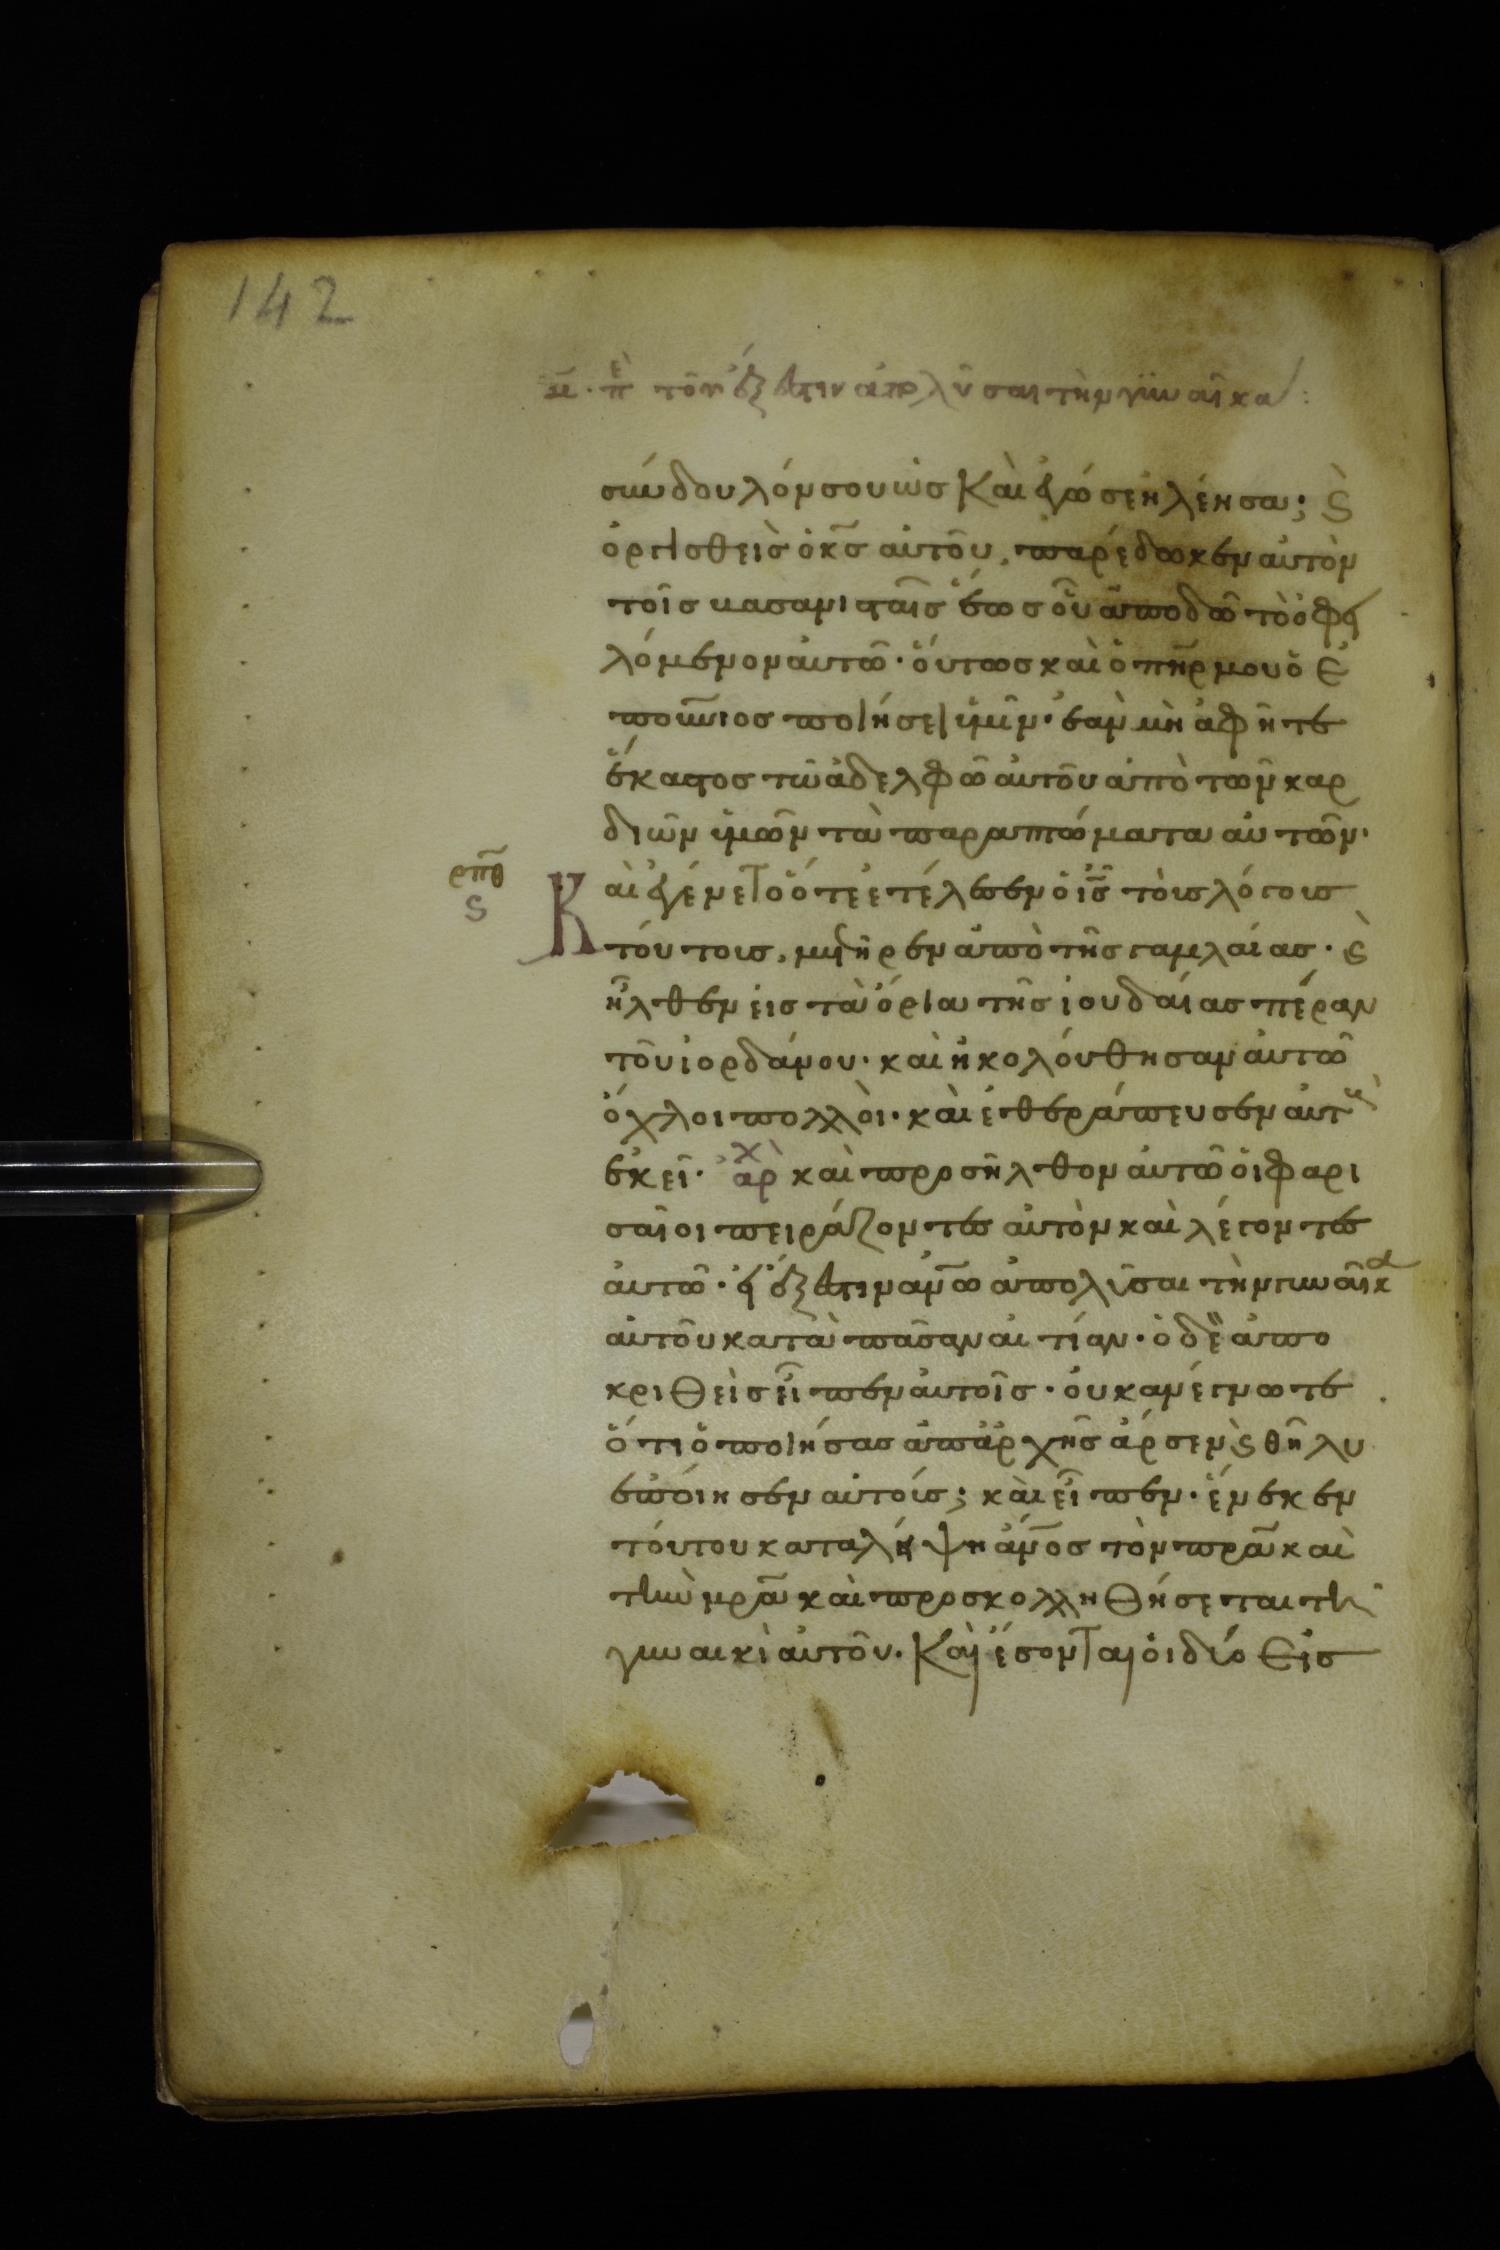 142
μ̄. πε τῶν εἰ ἔξεστιν ἀπολῦσαι τὴν γυναῖκα:
σύνδουλόν σου ὡς καὶ ἐγώ σε ἠλέησα; ϗ
ὀργισθεὶς ὁ κ̅ς αὐτοῦ, παρέδωκεν αὐτὸν
τοῖς βασανισταῖς ἕως οὗ ἀποδῶ τὸ ὀφει
λόμενον αὐτῶ· ὅυτως καὶ ὁ πη̅ρ μου ὁ ἐ
πουνιος ποιήσει ὑμῖν· ἐὰν μὴ ἀφῆτε
ἕκαστος τῶ ἀδελφῶ αὐτοῦ ἀπὸ τῶν καρ
διῶν ὑμῶν τὰ παραπτώματα αὐτῶν·
ρπθ
ς
Καὶ ἐγένετο ὅτε ἐτέλεσεν ὁ ι̅ς τοὺς λόγους
τούτους, μετῆρεν ἀπὸ τῆς γαλιλαίας· ϗ
ἦλθεν εἰς τὰ ὅρια τῆς ἰουδαίας πέραν
τοῦ ἰορδάνου· καὶ ἠκολούθησαν αὐτῶ
ὄχλοι πολλοὶ· καὶ ἐθεράπευσεν αὐτοὺς
ἐκεῖ· ἀρχ καὶ προσῆλθον αὐτῶ ὁι φαρι
σαῖοι πειράζοντες αὐτὸν καὶ λέγοντες
αὐτῶ· εἰ ἔξεστιν ἀν̅ω ἀπολῦσαι τὴν γυναῖκα
αὐτοῦ κατὰ πᾶσαν αἰτίαν· ὁ δὲ ἀπο
κριθεὶς εἶπεν αὐτοῖς· οὐκ ἀνέγνωτε
ὅτι ὁ ποιήσας ἀπ' ἀρχῆς ἄρσεν ϗ θῆλυ
ἐποίησεν αὐτούς; καὶ εἶπεν· ἕνεκεν
τούτου καταλείψη ἄν̅ος τὸν πρ̅α καὶ
τὴν μρ̅α καὶ προσκολληθήσεται τῆ
γυναικὶ αὐτοῦ. Καὶ ἔσονται ὁι δύο εἰς